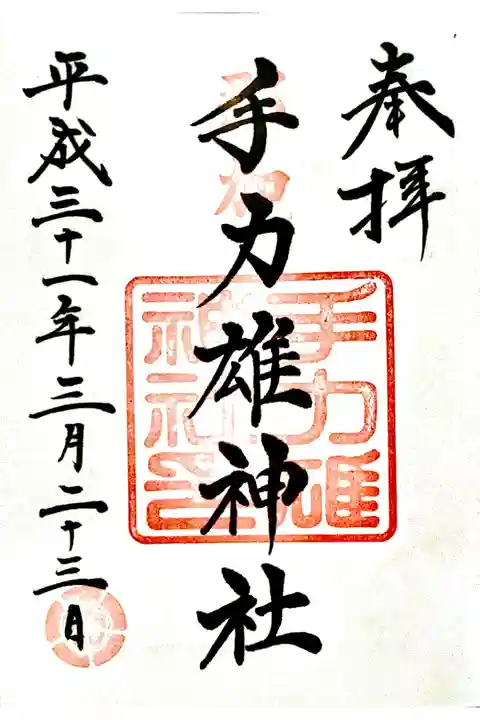 奉拝
手力雄神社
平成三十一年三月二十三日
手力雄
神社之印